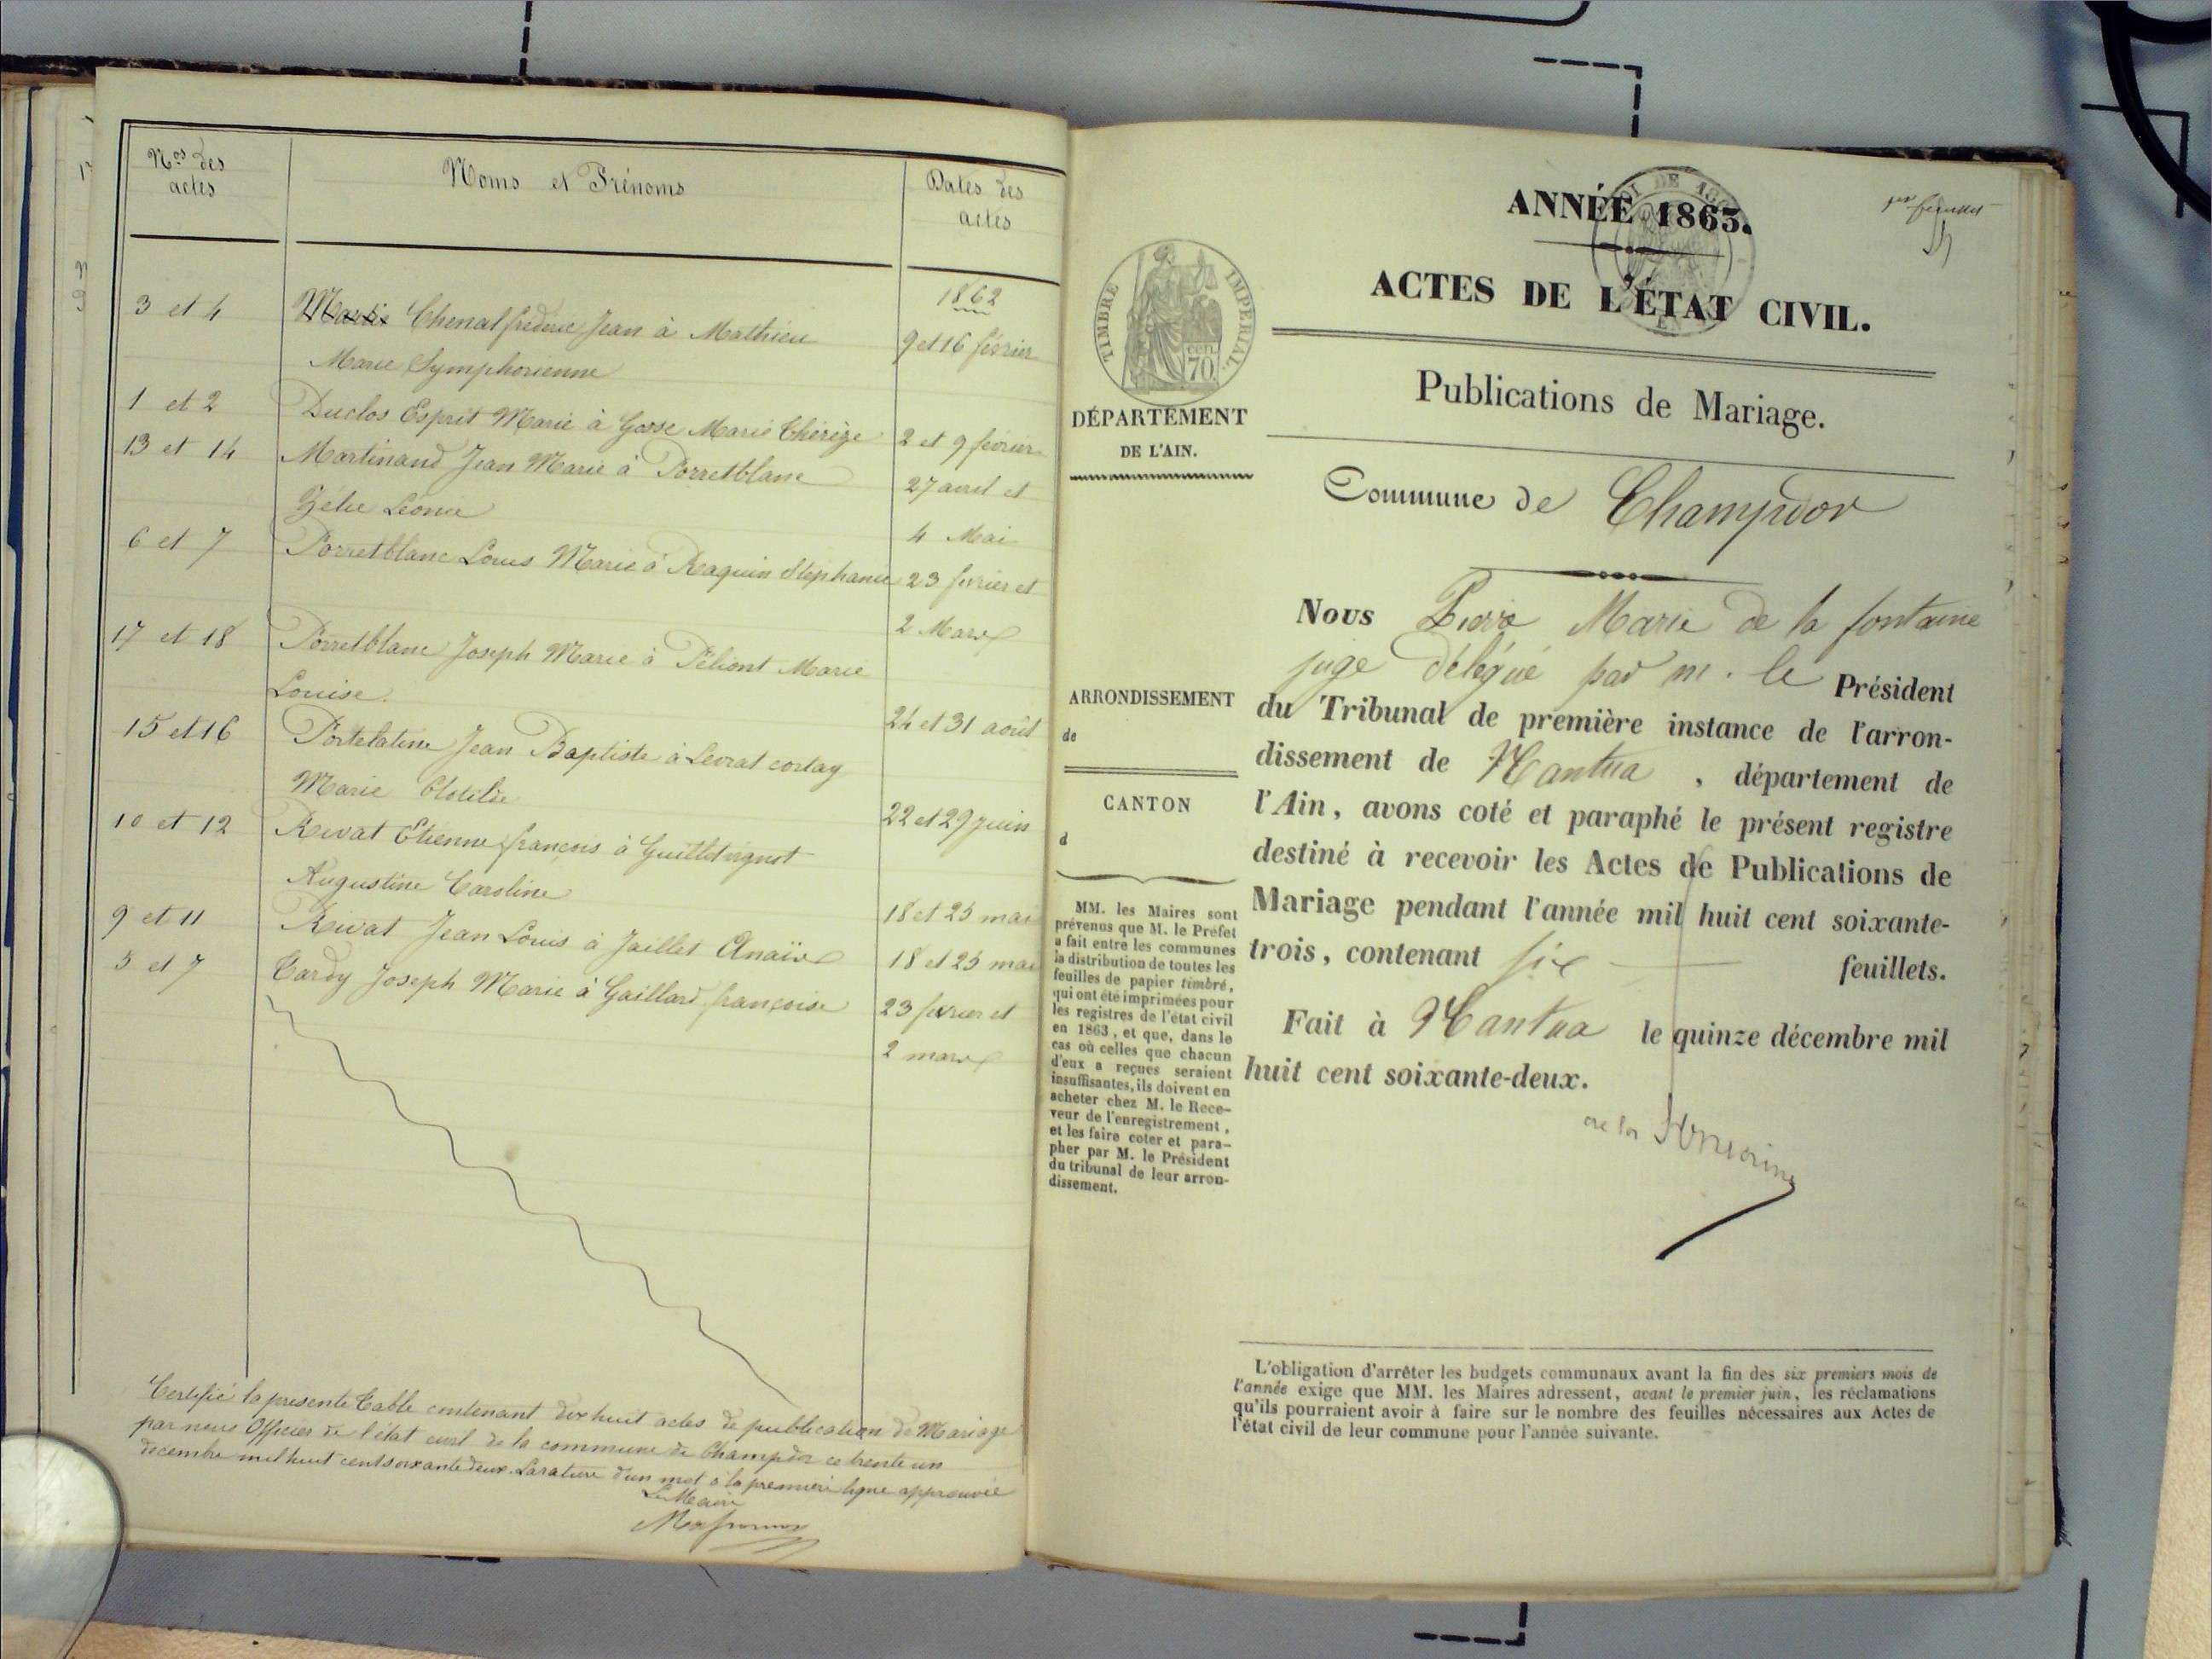 Nos des actes
Noms et Prénoms
Dates des actes
1862
3 et 4 Chenal frédéric Jean à Mathieu 9 et 16 février
Marie Symphorienne
1 et 2 Duclos Esprit Marie à Gosse Marie Thérèze 2 et 9 février
13 et 14 Martinand Jean Marie à Porretblanc 27 avril et
Zélie Léonie 4 Mai
6 et 7 Porretblanc Louis Marie à Raquin Stéphanie 23 fevrier et
2 Mars
17 et 18 Porretblanc Joseph Marie à Marie
Louise. 24 et 31 août
15 et 16 Portelatine Jean Baptiste à Levrat cortay
Marie Clotilde 22 et 29 juin
10 et 12 Rivat Etienne françois à
Augustine Caroline 18 et 25 mai
9 et 11 Rivat Jean Louis à Jaillet Anaïs 18 et 25 mai
5 et 7 Tardy Joseph Marie à Gaillard françoise 23 fevrier et
2 mars
Certifié la presente table contenant dix huit actes de publication de Mariage
par nous Officier de l'état civil de la commune de Champdor ce trente un
decembre mil huit cent soixante deux. La rature d'un mot à la première ligne approuvée
Le Maire
ANNÉE 1863.
ACTES DE L'ÉTAT CIVIL.
Publications de Mariage.
TIMBRE IMPERIAL
70 cen.
DÉPARTEMENT
DE L'AIN.
Commune de Champdor
Nous Pierre Marie de la fontaine
juge délégué par m. le Président
du Tribunal de première instance de l'arron-
dissement de Nantua, département de
l'Ain, avons coté et paraphé le présent registre
destiné à recevoir les Actes de Publications de
Mariage pendant l'année mil huit cent soixante-
trois, contenant six feuillets.
Fait à Nantua le quinze décembre mil
huit cent soixante-deux.
ARRONDISSEMENT
de
CANTON
d
MM. les Maires sont
prévenus que M. le Préfet
a fait entre les communes
la distribution de toutes les
feuilles de papier timbré,
qui ont été imprimées pour
les registres de l'état civil
en 1863, et que, dans le
cas où celles que chacun
d'eux a reçues seraient
insuffisantes, ils doivent en
acheter chez M. le Rece-
veur de l'enregistrement,
et les faire coter et para-
pher par M. le Président
du tribunal de leur arron-
dissement.
L'obligation d'arrêter les budgets communaux avant la fin des six premiers mois de
l'année exige que MM. les Maires adressent, avant le premier juin, les réclamations
qu'ils pourraient avoir à faire sur le nombre des feuilles nécessaires aux Actes de
l'état civil de leur commune pour l'année suivante.